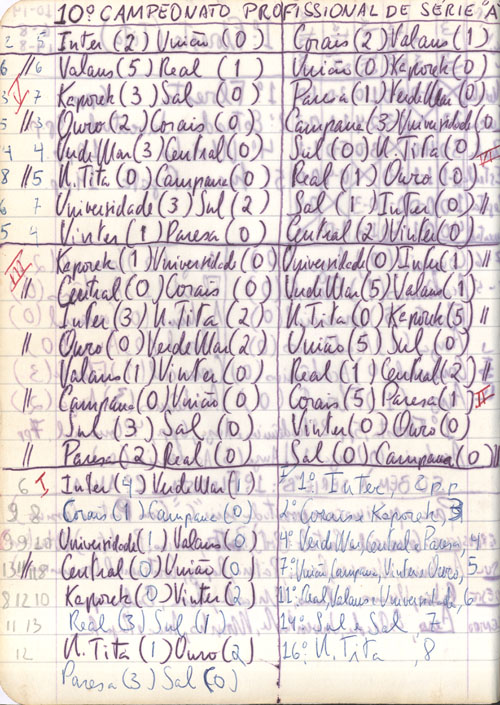 10º CAMPEONATO PROFISSIONAL DE SÉRIE "A
2 2 Inter (2) União (0) Corais (2) Valans (1)
6 // 6 Valans (5) Real (1) União (0) Kaporek (0)
3 V 7 Kaporek (3) Sal (0) Paresa (1) VerdeMar (0)
5 // 3 Ouro (2) Corais (0) Campana (3) Universidade (0
4 4 VerdeMar (3) Central (0) Sul (0) N. Tita (0)
8 // 5 N. Tita (0) Campana (0) Real (1) Ouro (0)
6 7 Universidade (3) Sul (2) Sal (1) Inter (0) //
5 4 Vinter (1) Paresa (0) Central (2) Vinter (0)
III Kaporek (1) Universidade (0) Universidade (0) Inter (1) //
// Central (0) Corais (0) VerdeMar (5) Valans (1)
Inter (3) N. Tita (2) N. Tita (0) Kaporek (5) //
// Ouro (0) VerdeMar (2) União (5) Sul (0)
Valans (1) Vinter (0) Real (1) Central (2) //
// Campana (0) União (0) Corais (5) Paresa (1) II
Sul (3) Sal (0) Vinter (0) Ouro (0)
// Paresa (2) Real (0) Sal (0) Campana (0) //
6 I Inter (4) VerdeMar (1) 1º Inter, 2 p.p.
9 8 Corais (1) Campana (0) 2º Corais e Kaporek, 3
Universidade (1) Valans (0) 4º VerdeMar, Central e Paresa, 4
// Central (0) União (0) 7º União, Campana, Vinter e Ouro, 5
8 12 10 Kaporek (0) Vinter (2 11º Real, Valans e Universidade, 6
11 13 Real (3) Sul (1) 14º Sul e Sal 7
12 N. Tita (1) Ouro (2) 16º N. Tita , 8
Paresa (3) Sal (0)